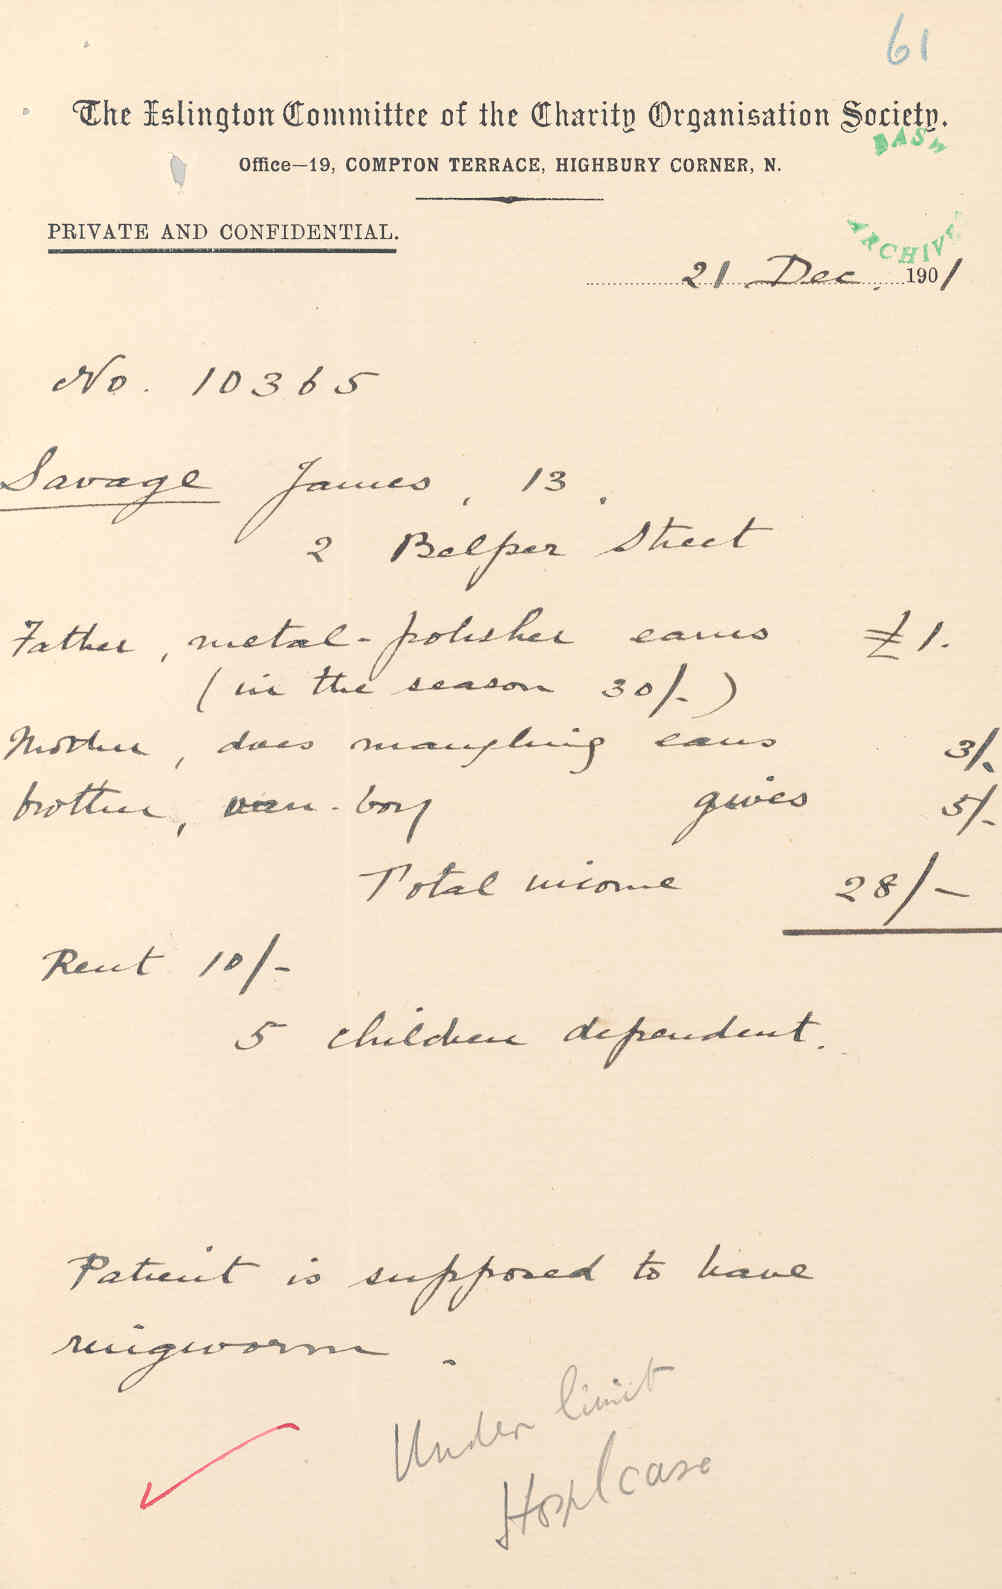 61
The Islington Committee of the Charity Organisation Society.
BASW
Office—19, COMPTON TERRACE, HIGHBURY CORNER, N.
PRIVATE AND CONFIDENTIAL.
ARCHIVES
21 Dec. 1901
No. 10365
Savage James, 13.
2 Belper Street
Father, metal-polisher earns £1.
(in the season 30/-)
Mother, does mangling earns 3/-
brother, van-boy gives 5/-
Total income 28/-
Rent 10/-
5 children dependent.
Patient is supposed to have
ringworm.
Under limit
Hospl case